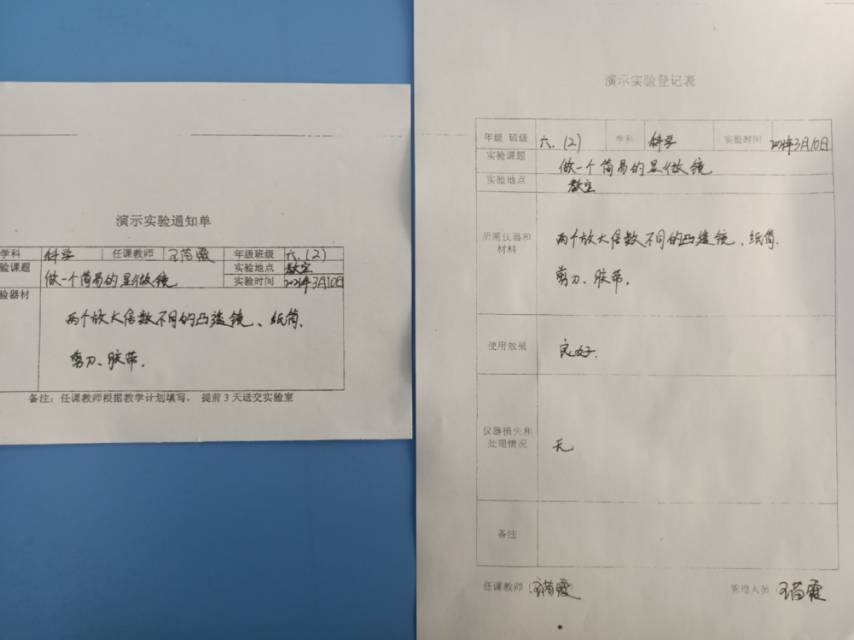 演示实验通知单
学科 科学 任课教师 年级班级 六.(2)
验课题 做一个简易的显微镜 实验地点 教室
实验时间 3月10日
验器材 两个放大倍数不同的凸透镜、纸筒、
剪刀、胶带。
备注：任课教师根据教学计划填写， 提前3天送交实验室
演示实验登记表
年级 班级 六.(2) 学科 科学 实验时间 3月10日
实验课题 做一个简易的显微镜
实验地点 教室
所需仪器和材料 两个放大倍数不同的凸透镜、纸筒、
剪刀、胶带。
使用效果 良好.
仪器损失和处理情况 无
备注
任课教师 管理人员